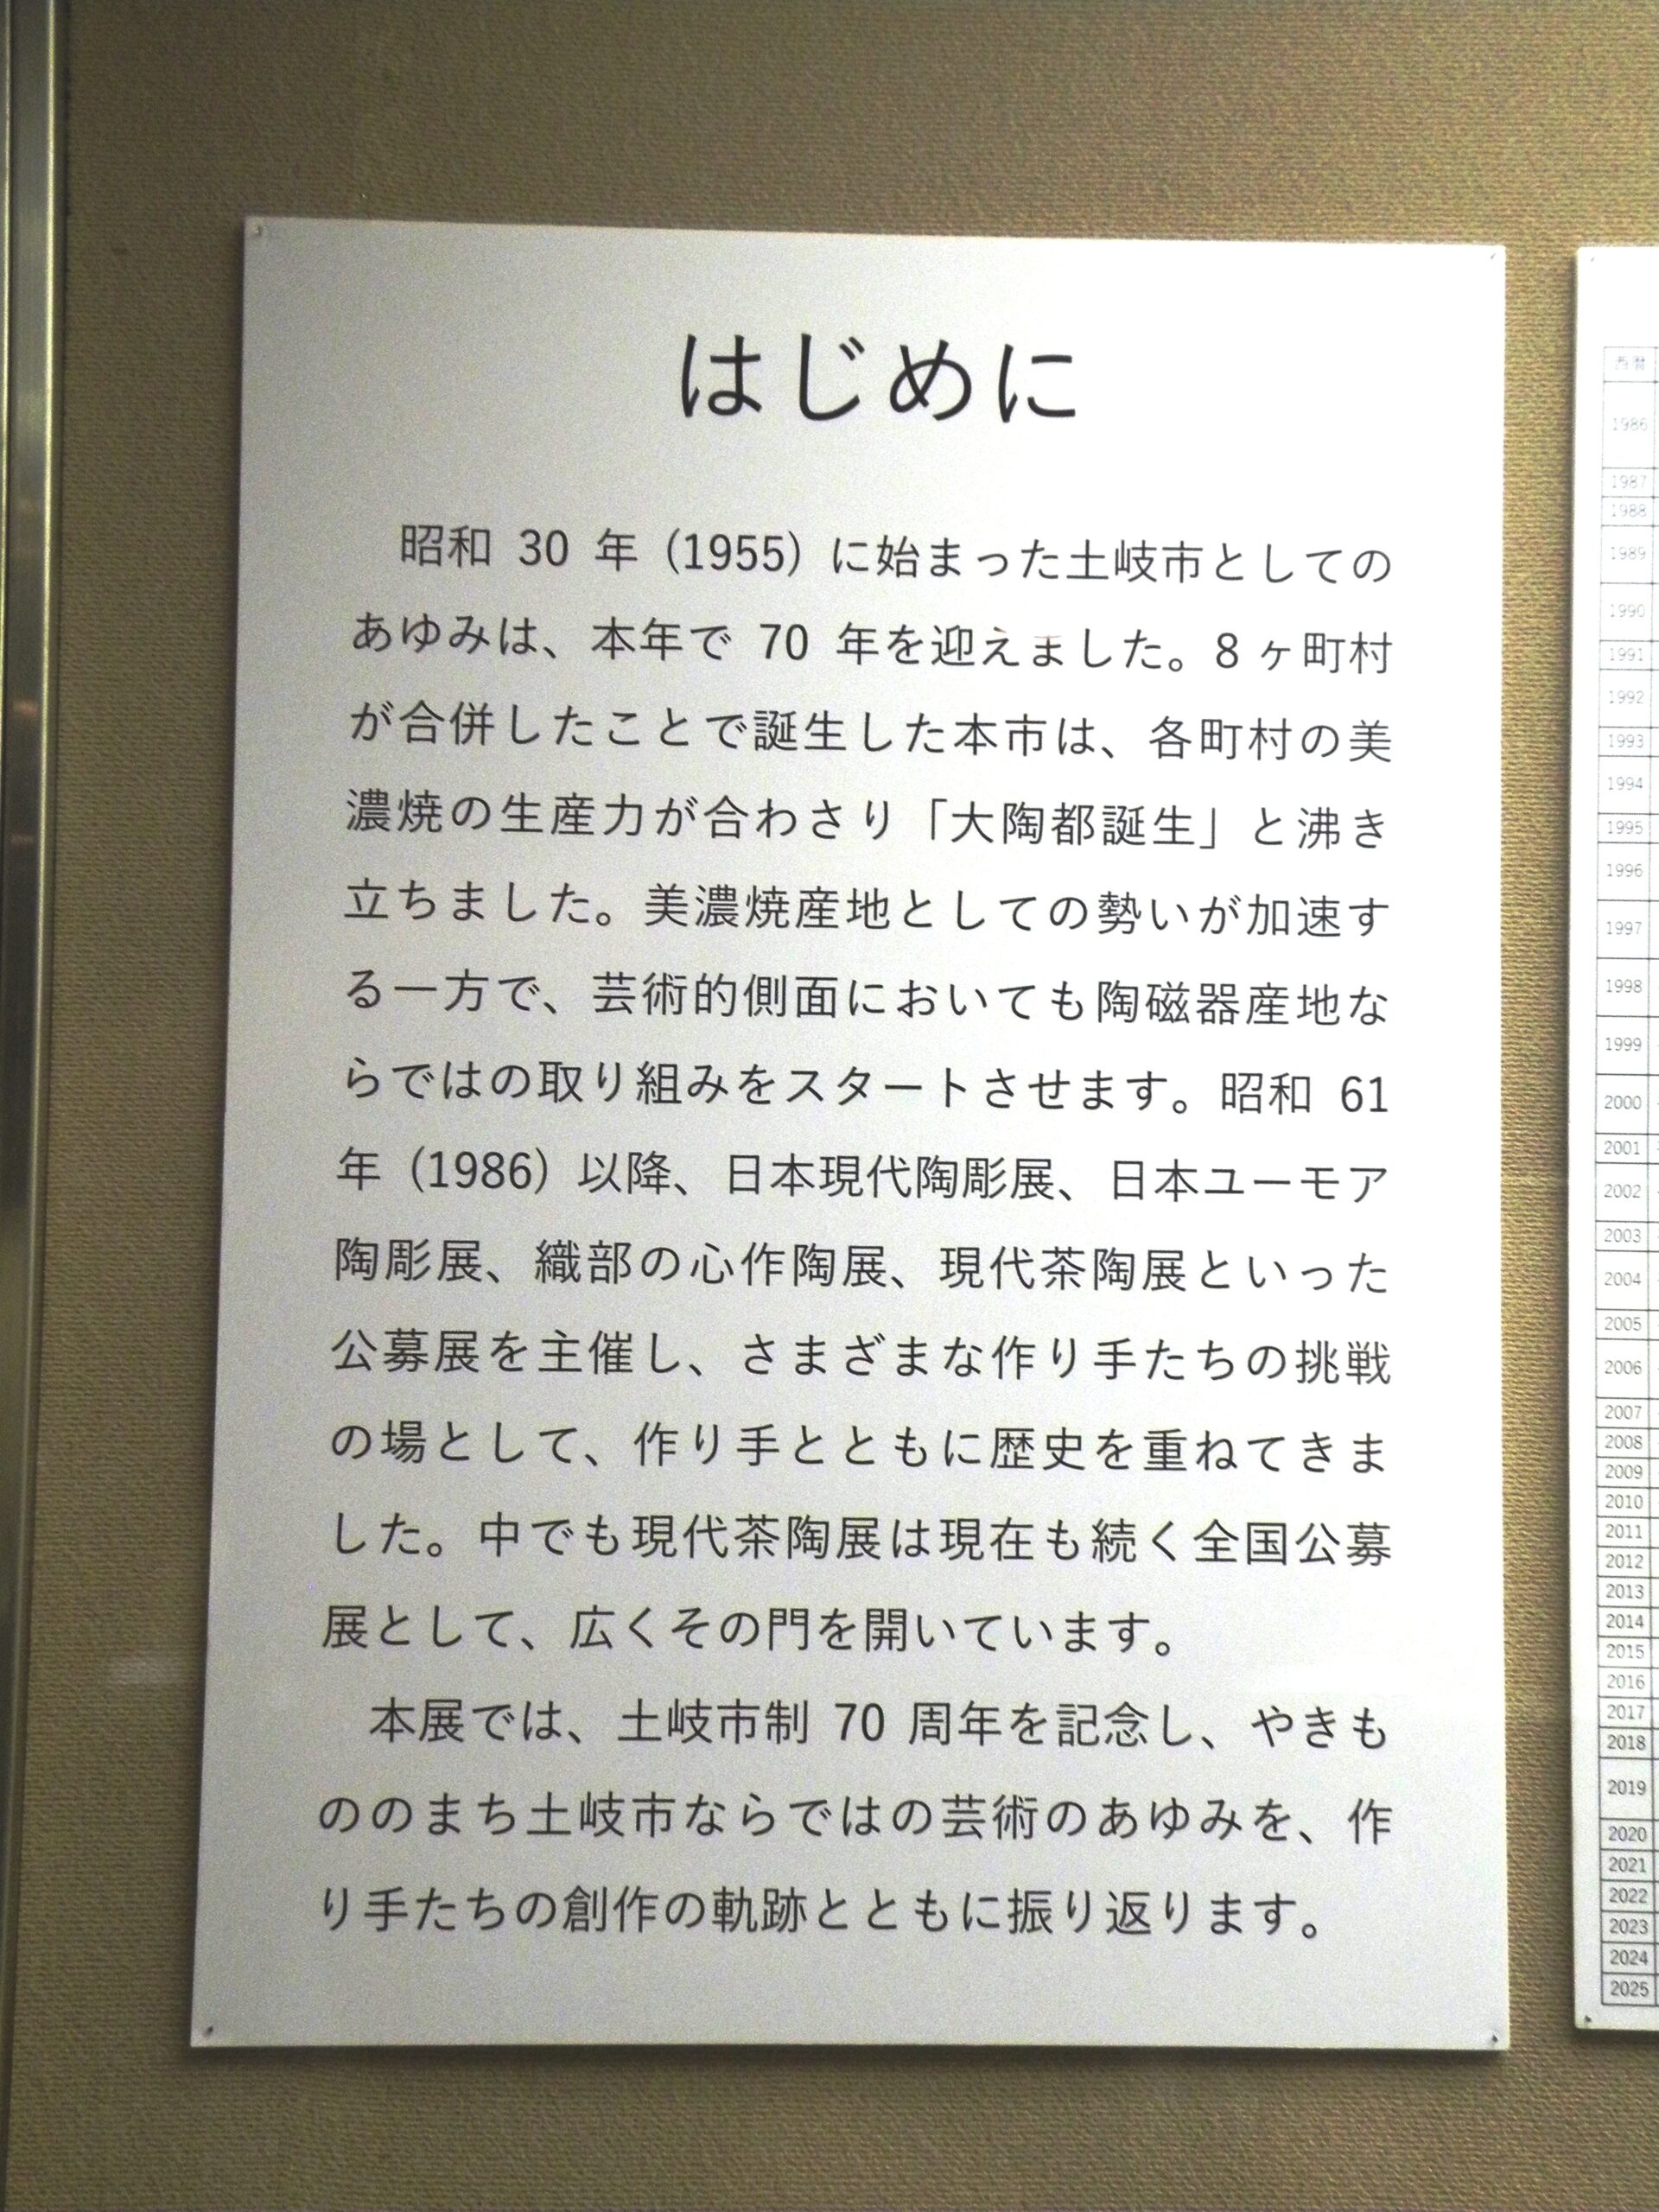 はじめに
昭和 30 年 (1955) に始まった土岐市としての
あゆみは、本年で 70 年を迎えました。8 ヶ町村
が合併したことで誕生した本市は、各町村の美
濃焼の生産力が合わさり「大陶都誕生」と沸き
立ちました。美濃焼産地としての勢いが加速す
る一方で、芸術的側面においても陶磁器産地な
らではの取り組みをスタートさせます。昭和 61
年 (1986) 以降、日本現代陶彫展、日本ユーモア
陶彫展、織部の心作陶展、現代茶陶展といった
公募展を主催し、さまざまな作り手たちの挑戦
の場として、作り手とともに歴史を重ねてきま
した。中でも現代茶陶展は現在も続く全国公募
展として、広くその門を開いています。
本展では、土岐市制 70 周年を記念し、やきも
ののまち土岐市ならではの芸術のあゆみを、作
り手たちの創作の軌跡とともに振り返ります。
西暦
1986
1987
1988
1989
1990
1991
1992
1993
1994
1995
1996
1997
1998
1999
2000
2001
2002
2003
2004
2005
2006
2007
2008
2009
2010
2011
2012
2013
2014
2015
2016
2017
2018
2019
2020
2021
2022
2023
2024
2025